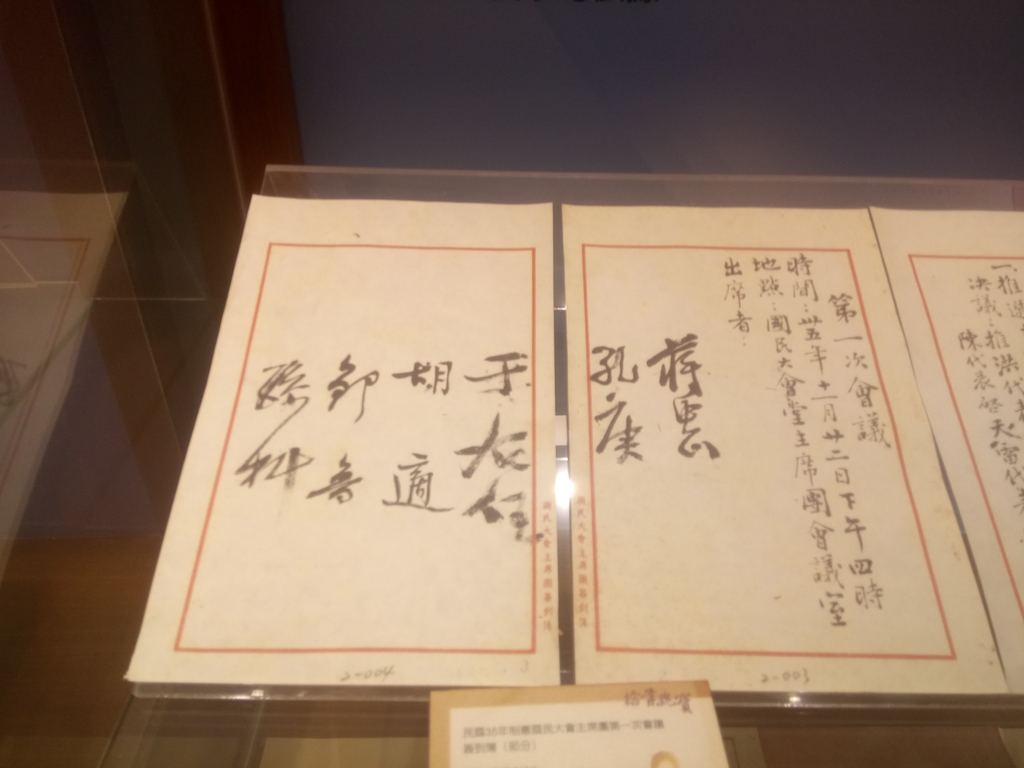 第一次會議
時間：卅五年十一月廿二日下午四時
地點：國民大會堂主席團會議室
出席者：
蔣中正
孔庚
于右任
胡適
邹魯
孫科
國民大會主席團簽到簿
國民大會主席團簽到簿
2-003
2-004
3
一、推選
決議：推洪代表
陳代表啓天
民國35年制憲國民大會主席團第一次會議
簽到簿（部分）